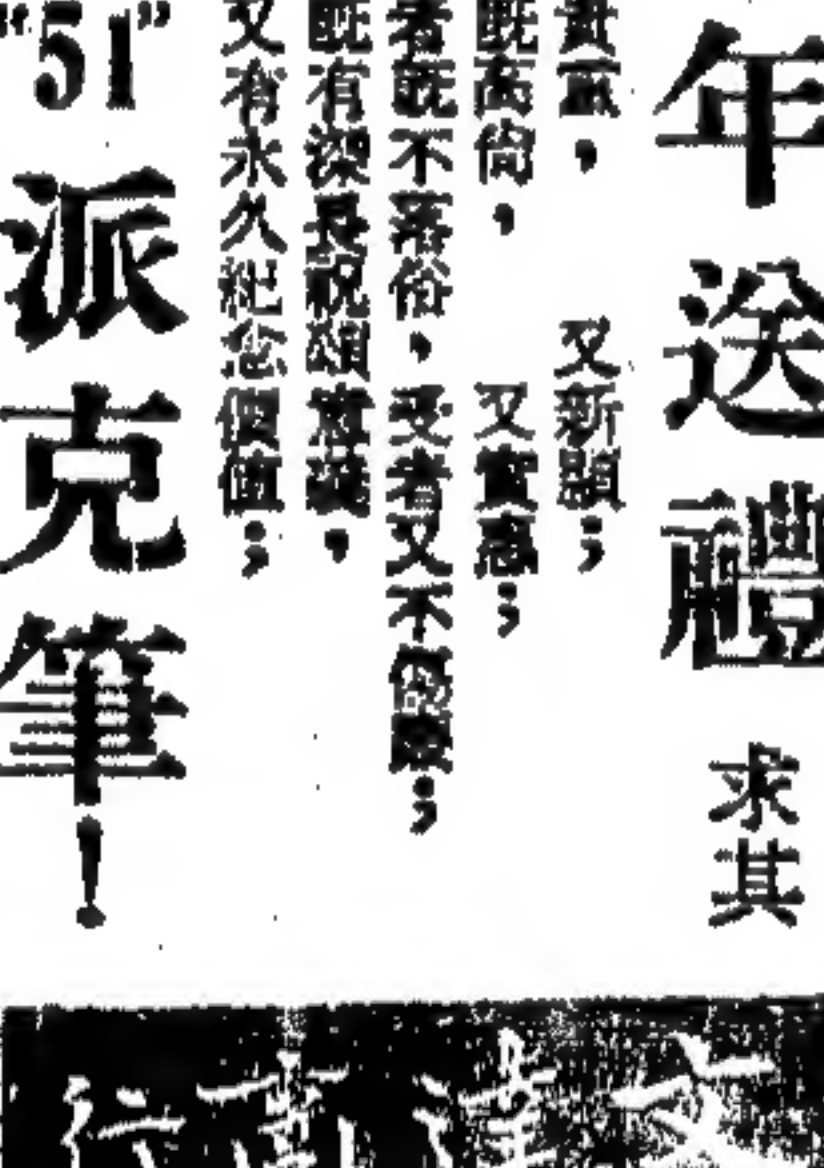 年送禮 求其
貴重， 又新穎；
既高尚， 又實惠；
者既不落俗，受者又不
既有深長祝頌意義，
又有永久紀念價值；
"51"派克筆！